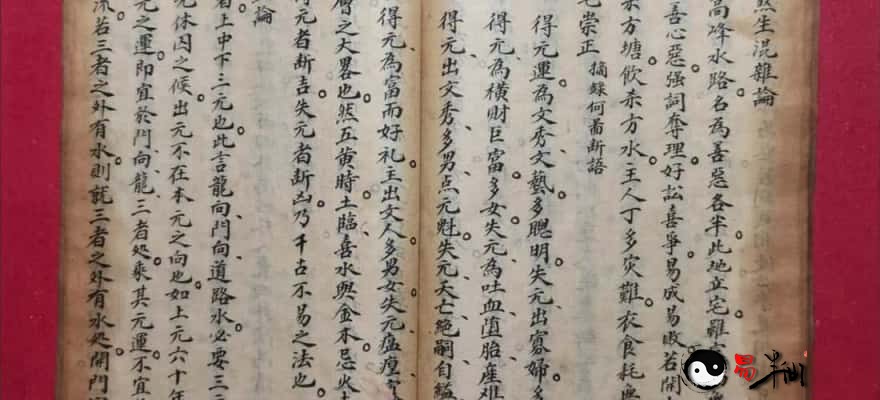 煞生混雜論
高峰水路名為善惡各半此地立宅雖
善心惡强詞奪理好訟喜爭易成易敗若開
杀方塘飲杀方水主人丁多灾難衣食耗
宅崇正 摘錄何啚断語
得元運為文秀文藝多聰明失元出寡婦多
得元為橫財巨富多女失元為吐血墮胎産难
得元出文秀多男点元魁失元夭亡絶嗣自縊
得元為富而好礼主出文人多男女失元瘟
層之大畧也然五黄時土臨喜水與金木忌火
得元者断吉失元者断凶乃千古不易之法也
論
者上中下三元也此言龍向門向道路水必要三
元无休囚之候出元不在本元之向也如上元六十年
元之運即宜於門向龍三者処乘其元運不宜
流若三者之外有水則就三者之外有水処開門
易半仙